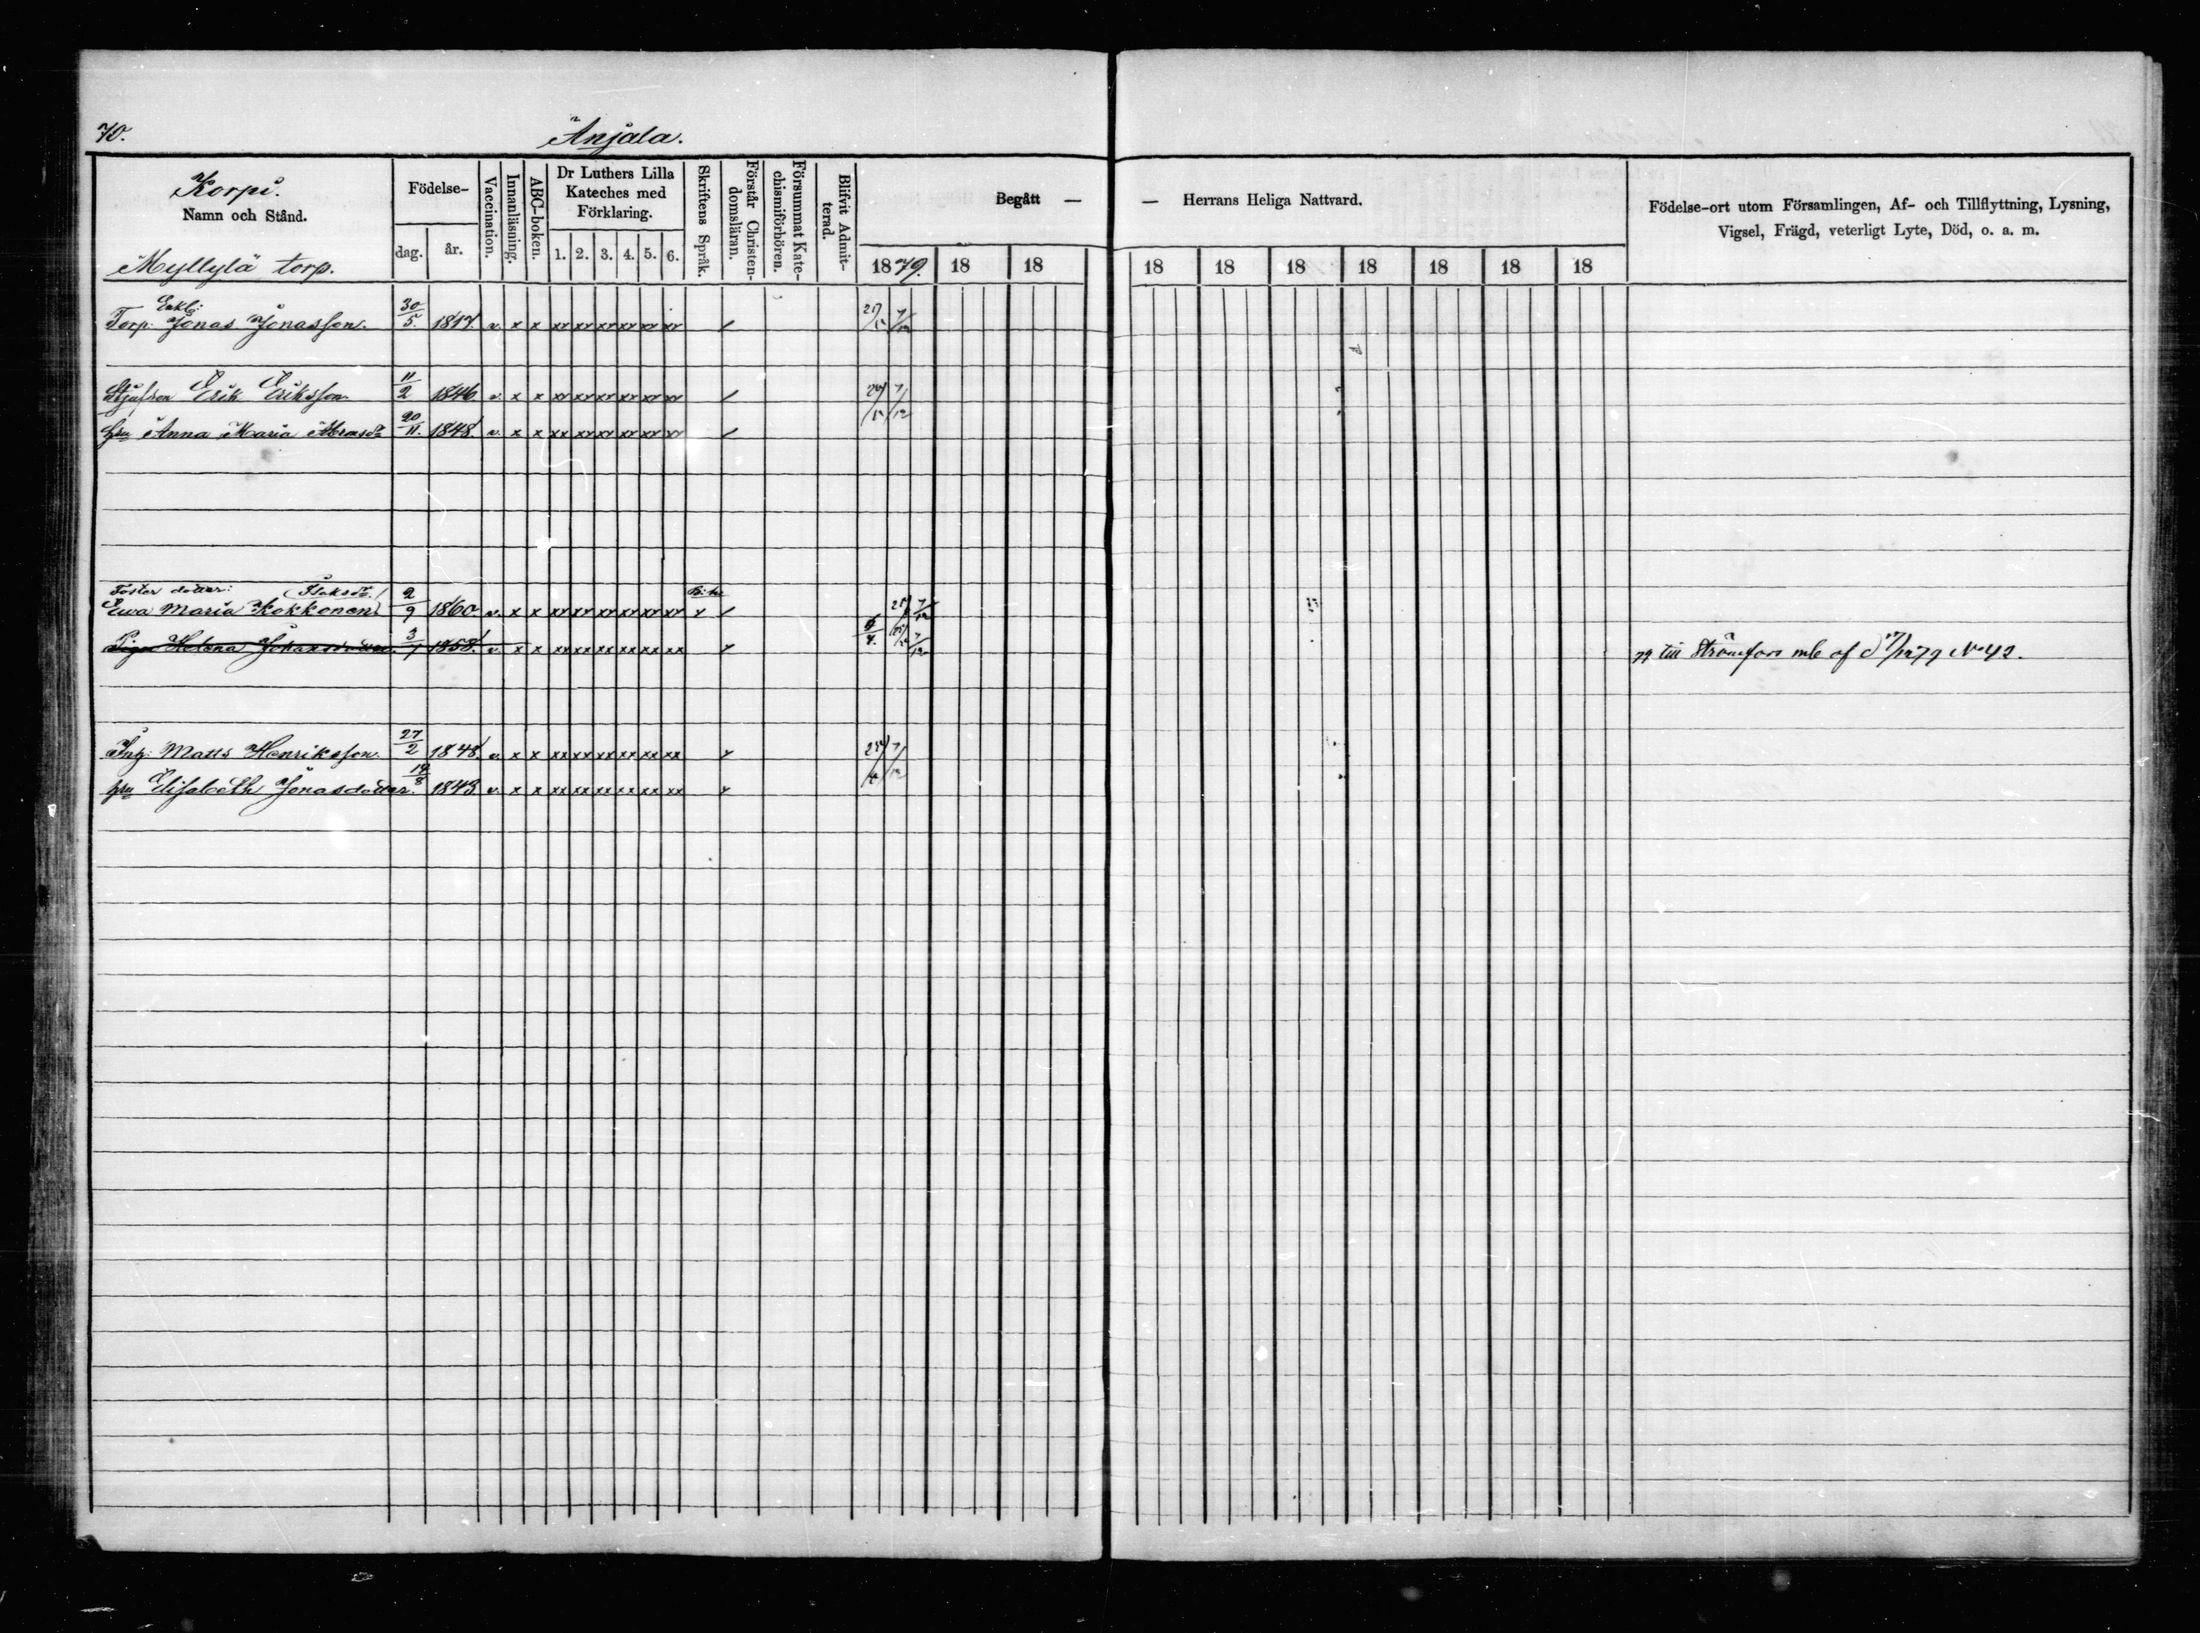 70. Anjala.
Korpi.
Namn och Stånd.
Myllylä torp.
Födelse-
dag. år.
Vaccination.
Innanläsning.
ABC-boken.
Dr Luthers Lilla
Kateches med
Förklaring.
1. 2. 3. 4. 5. 6.
Skriftens Språk.
Förstår Christen-
domsläran.
Försummat Kate-
chismiförhören.
Blifvit Admit-
terad.
Begått —
1879. 18 18
— Herrans Heliga Nattvard.
18 18 18 18 18 18 18
Födelse-ort utom Församlingen, Af- och Tillflyttning, Lysning,
Vigsel, Frägd, veterligt Lyte, Död, o. a. m.
Enkl:
Torp: Jonas Jonasson. 30/5. 1817. v. x x xx xx xx xx xx xx
Styfson Erik Eriksson. 11/2 1846 v. x x xx xx xx xx xx xx 7/12
hu Anna Maria 20/11. 1848. v. x x xx xx xx xx xx xx
Foster dotter:
Ewa Maria Kokkonen 2/9 1860 v. x x xx xx xx xx xx xx 7/12
Piga Helena Johansdotter 3/1 1858. v. x x xx xx xx xx xx xx 7/12 79 till Strömfors mb af d 17/12 79 No 42.
Inh: Matts Henriksson. 27/2 1848. v. x x xx xx xx xx xx xx 7/12
hu Elisabeth Jonasdotter. 19/8 1843 v. x x xx xx xx xx xx xx